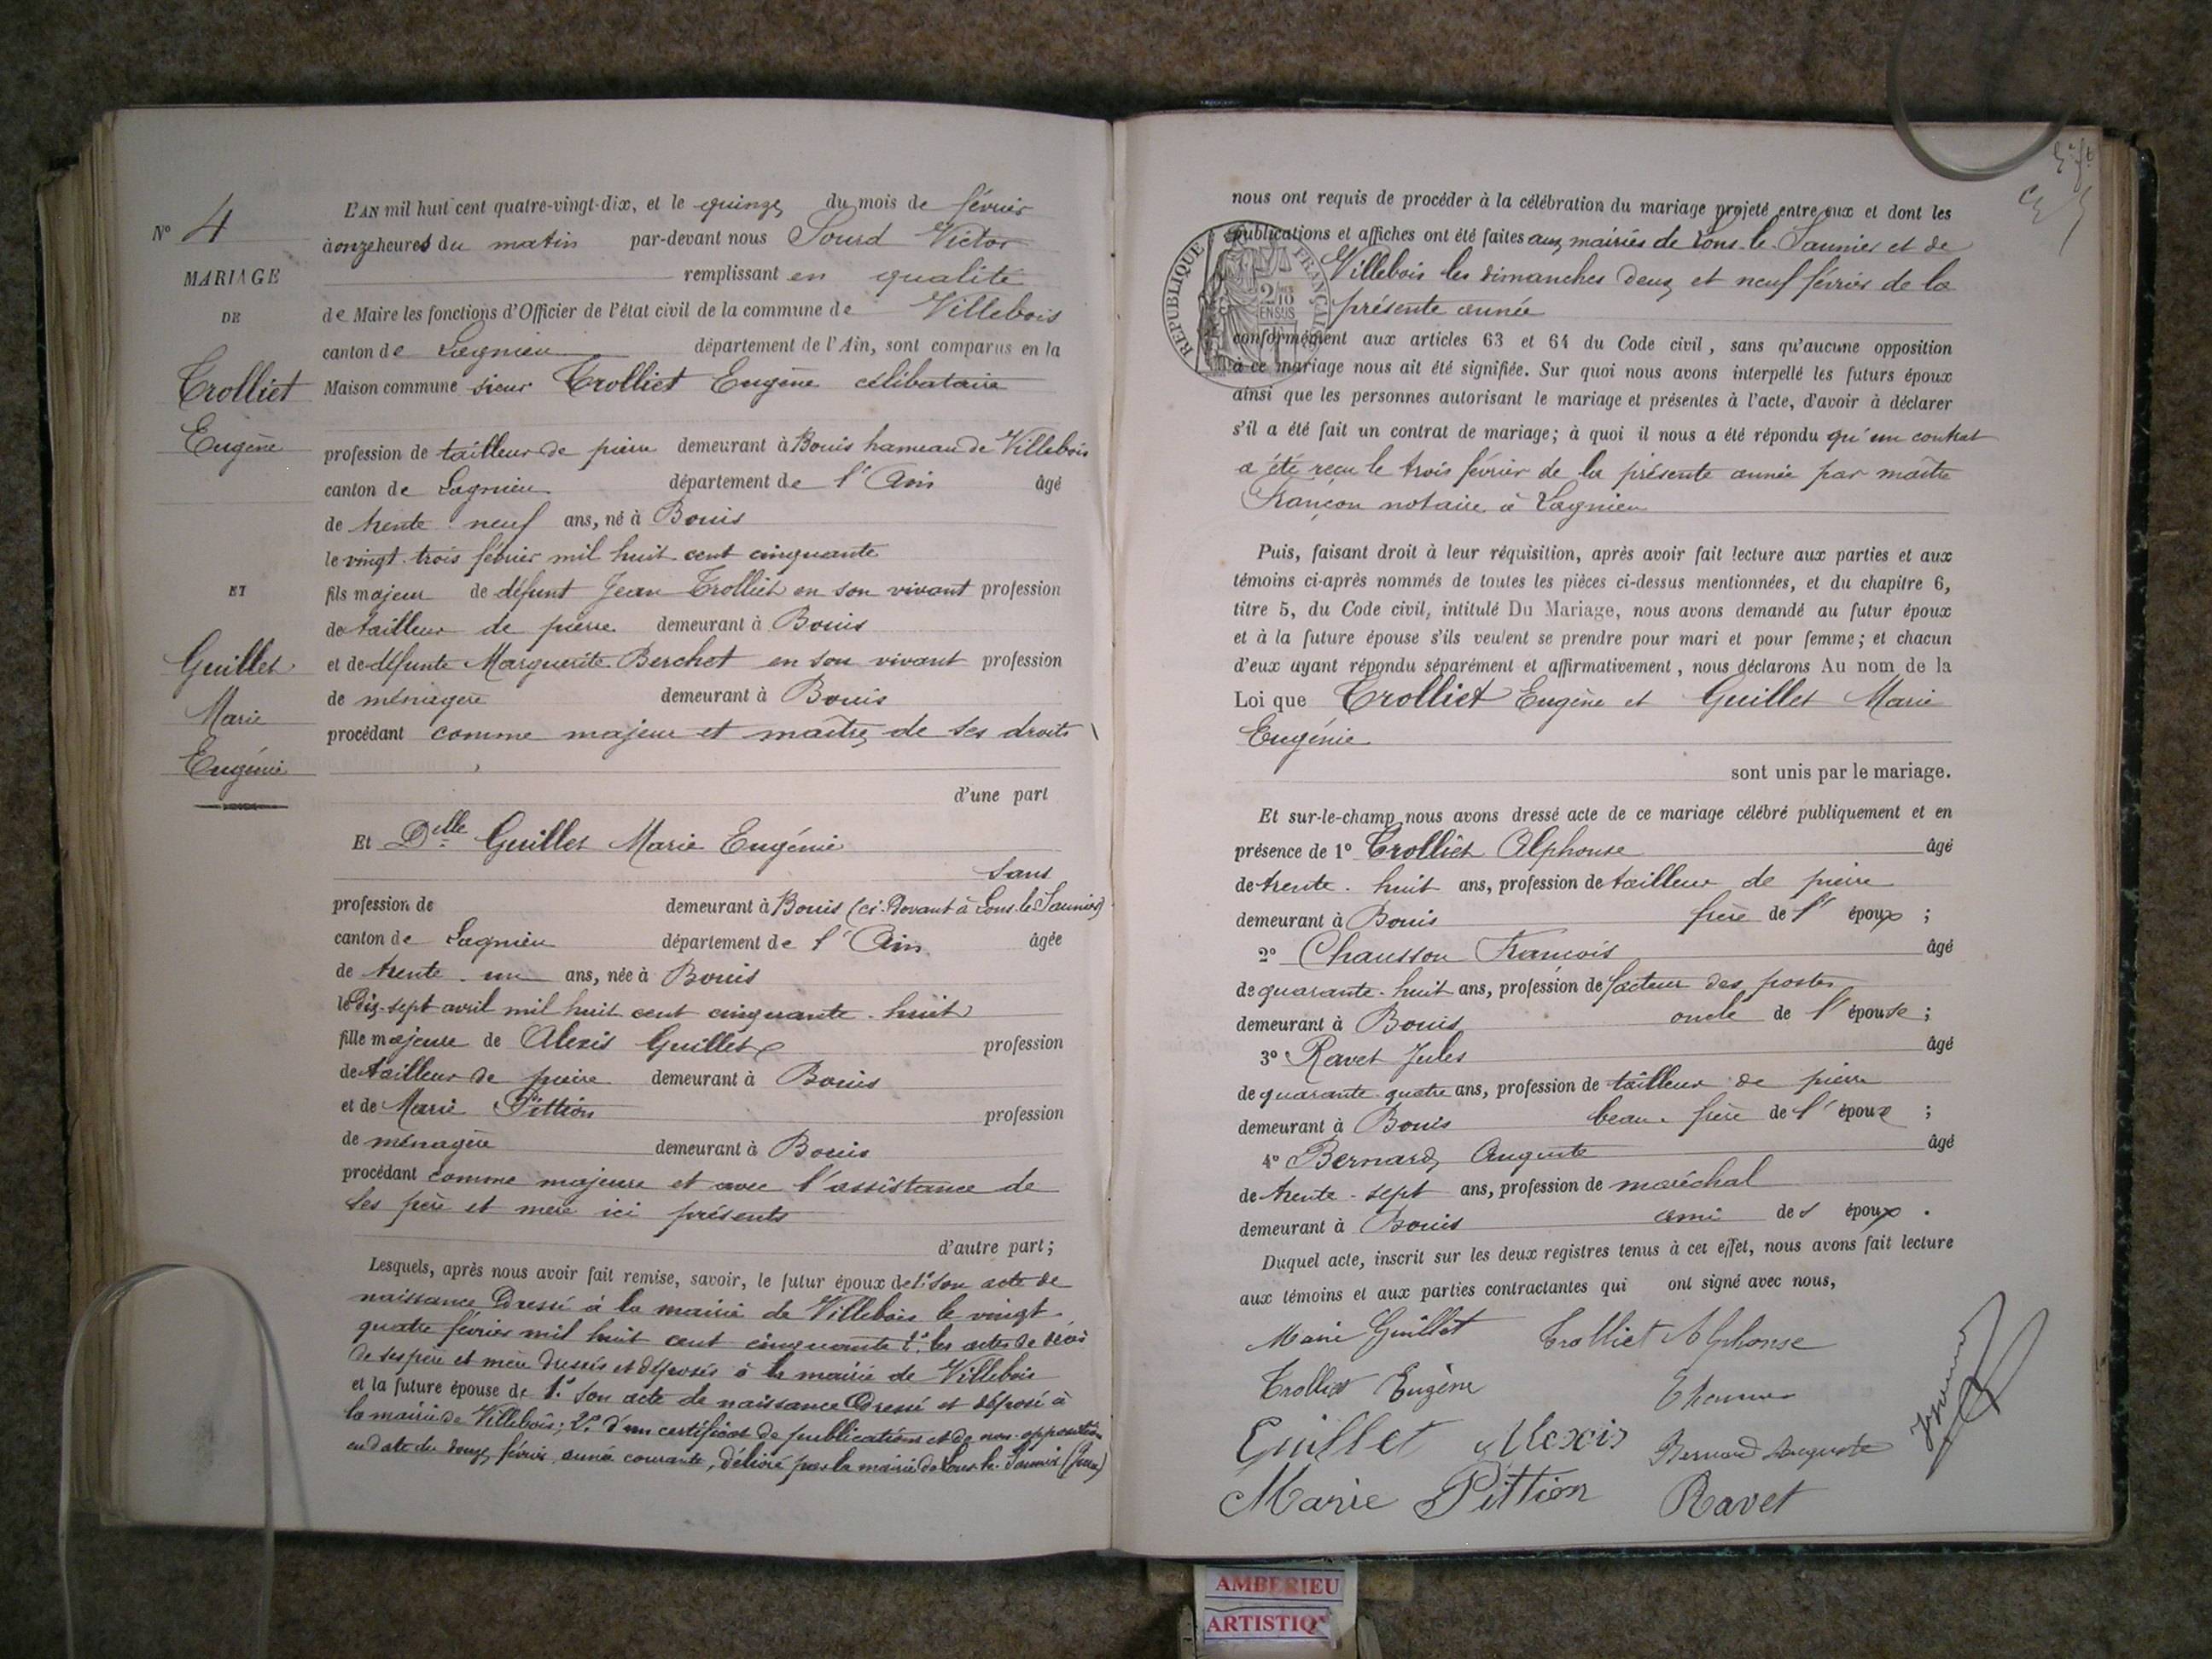 N° 4
MARIAGE
DE
Trolliet
Eugène
ET
Guillet
Marie
Eugénie
L'AN mil huit cent quatre-vingt-dix, et le quinze du mois de février
à onze heures du matin par-devant nous Sourd Victor
remplissant en qualité
de Maire les fonctions d'Officier de l'état civil de la commune de Villebois
canton de Lagnieu département de l'Ain, sont comparus en la
Maison commune sieur Trolliet Eugène célibataire
profession de tailleur de pierre demeurant à Bouis hameau de Villebois
canton de Lagnieu département de l'Ain âgé
de trente-neuf ans, né à Bouis
le vingt-trois février mil huit cent cinquante
fils majeur de défunt Jean Trolliet en son vivant profession
de tailleur de pierre demeurant à Bouis
et de défunte Marguerite Berchet en son vivant profession
de ménagère demeurant à Bouis
procédant comme majeur et maître de ses droits
d'une part
Et Delle Guillet Marie Eugénie
sans
profession de demeurant à Bouis (ci-devant à Lons-le-Saunier)
canton de Lagnieu département de l'Ain âgée
de trente-un ans, née à Bouis
le dix-sept avril mil huit cent cinquante-huit
fille majeure de Alexis Guillet profession
de tailleur de pierre demeurant à Bouis
et de Marie Pittion profession
de ménagère demeurant à Bouis
procédant comme majeure et avec l'assistance de
ses père et mère ici présents
d'autre part;
Lesquels, après nous avoir fait remise, savoir, le futur époux de 1° son acte de
naissance dressé à la mairie de Villebois le vingt-
quatre février mil huit cent cinquante 2° les actes de décès
de ses père et mère dressés et déposés à la mairie de Villebois
et la future épouse de 1° son acte de naissance dressé et déposé à
la mairie de Villebois; 2° d'un certificat de publications et de non-opposition
en date du douze février, année courante, délivré par la mairie de Lons-le-Saunier (Jura)
nous ont requis de procéder à la célébration du mariage projeté entre eux et dont les
publications et affiches ont été faites aux mairies de Lons-le-Saunier et de
Villebois les dimanches deux et neuf février de la
présente année
RÉPUBLIQUE FRANÇAISE
2/10
EN SUS
conformément aux articles 63 et 64 du Code civil, sans qu'aucune opposition
à ce mariage nous ait été signifiée. Sur quoi nous avons interpellé les futurs époux
ainsi que les personnes autorisant le mariage et présentes à l'acte, d'avoir à déclarer
s'il a été fait un contrat de mariage; à quoi il nous a été répondu qu'un contrat
a été reçu le trois février de la présente année par maître
Françon notaire à Lagnieu
Puis, faisant droit à leur réquisition, après avoir fait lecture aux parties et aux
témoins ci-après nommés de toutes les pièces ci-dessus mentionnées, et du chapitre 6,
titre 5, du Code civil, intitulé Du Mariage, nous avons demandé au futur époux
et à la future épouse s'ils veulent se prendre pour mari et pour femme; et chacun
d'eux ayant répondu séparément et affirmativement, nous déclarons Au nom de la
Loi que Trolliet Eugène et Guillet Marie
Eugénie
sont unis par le mariage.
Et sur-le-champ nous avons dressé acte de ce mariage célébré publiquement et en
présence de 1° Trolliet Alphonse âgé
de trente-huit ans, profession de tailleur de pierre
demeurant à Bouis frère de l'époux;
2° Chausson François âgé
de quarante-huit ans, profession de facteur des postes
demeurant à Bouis oncle de l'épouse;
3° Ravet Jules âgé
de quarante-quatre ans, profession de tailleur de pierre
demeurant à Bouis beau-frère de l'époux;
4° Bernard Auguste âgé
de trente-sept ans, profession de maréchal
demeurant à Bouis ami des époux.
Duquel acte, inscrit sur les deux registres tenus à cet effet, nous avons fait lecture
aux témoins et aux parties contractantes qui ont signé avec nous,
Marie Guillet Trolliet Alphonse
Trolliet Eugène
Guillet Alexis Bernard Auguste
Marie Pittion Ravet
AMBERIEU
ARTISTIQ